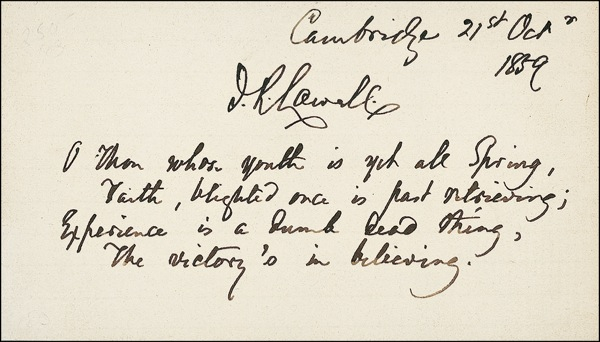 Cambridge 21st Octr
1859
J. R. Lowell.
O Thou whose youth is yet all Spring,
Faith, blighted once is past retrieving;
Experience is a dumb dead thing,
The victory's in believing.